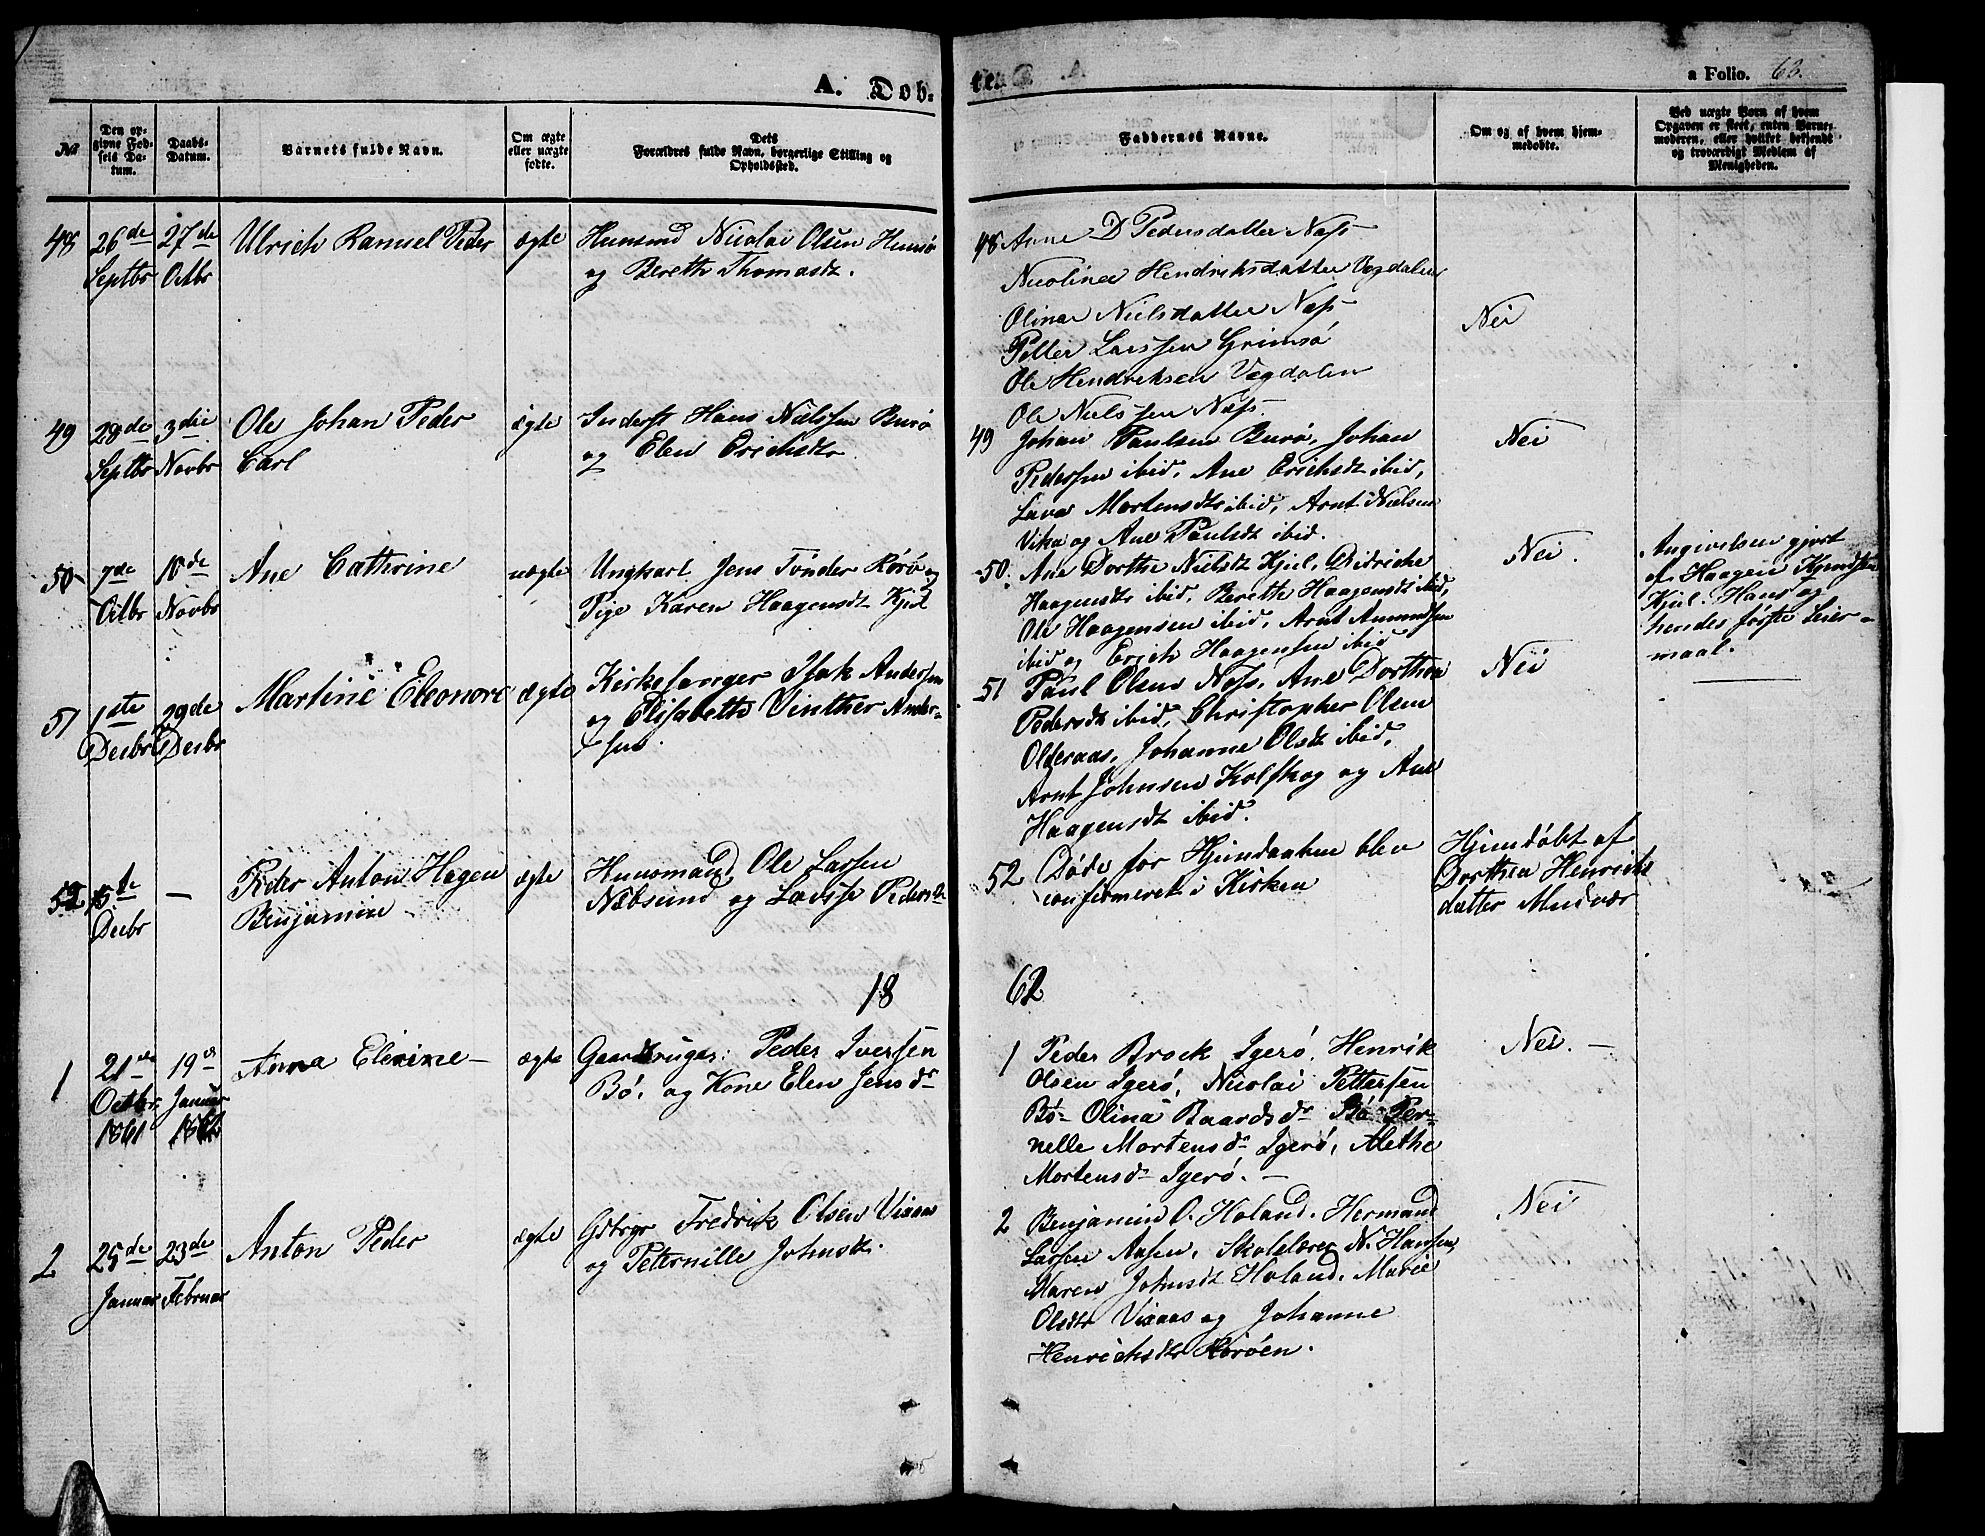 A. Døb.
te.
a Folio. 63.
No
Den op-
givne Fød-
sels Da-
tum.
Daabs-
Datum.
Barnets fulde Navn.
Om ægte
eller uægte
fødte.
Dets
Forældres fulde Navn, borgerlige Stilling og
Opholdssted.
Faddernes Navne.
Om og af hvem hjem-
medøbte.
Ved uægte Børn af hvem
Opgaven er skeet, enten Barne-
moderen, eller hvilket bekjendt
og troværdigt Medlem af
Menigheden.
48 26de 27de Ulrich Ranuel Peder ægte Huusmd Nicolai Olsen
Septbr Octbr og Bereth Thomasdtr.
48 Anne D Pedersdatter Næss
Nicolina Hendriksdatter Vægdalen
Olina Nielsdatter Næss
Petter Larssen Grimsö
Ole Hendriksen Vægdalen
Ole Nielssen Næss.
Nei
49 28de 3die Ole Johan Peder ægte Inderst Hans Nielssen Burö
Septbr Novbr Carl og Elen Erichsdtr
49 Johan Paulsen Burö, Johan
Pedersen ibid, Ane Erichsdt ibid,
Lava Mortensdtr ibid, Arnt Nielsen
Vika og Ane Paulsdt ibid.
Nei
50 7de 10de Ane Cathrine uægte Ungkarl Jens Tönder Rörö og
Octbr Novbr Pige Karen Haagensdt Kjul
50. Ane Dorthe Nielsdt Kjul, Didriche
Haagensdtr ibid, Bereth Haagensdt ibid,
Ole Haagensen ibid, Arnt Amundsen
ibid og Erich Haagensen ibid
Nei.
Angivelsen gjort
af Haagen
Kjul. Hans og
hendes første Leier-
maal.
51 1ste 29de Martine Eleonore ægte Kirkesanger Isak Andersen
Decbr Decbr og Elisabeth Vinther Ander-
sen.
51 Paul Olsen Næss, Ane Dorthea
Pedersdt ibid, Christopher Olsen
Olderaas, Johanne Olsdt ibid,
Arnt Johnsen Kolskog og Ane
Haagensdt ibid.
Nei
52 10de — Peder Anton Hagen ægte Huusmand Ole Larsen
Decbr Benjamin Næbsund og Pedersdtr
52 Døde før Hjemdaaben blev
confirmeret i Kirken
Hjemdöbt af
Dorthea Henriks
datter Mudvær
18 62
1 21de 19de Anna Elenine — ægte Gaardbruger: Peder Iversen
Octbr Januar Bö, og Kone Elen Jensdr
1861 1862
1 Peder Brock Igerö, Henrik
Olsen Igerö, Nicolai Pettersen
Bö- Olina Baardsdr Bö Per-
nelle Mortensdr Igerö, Alethe
Mortensdr Igerö. —
Nei. —
2 25de 23de Anton Peder ægte Gbrgr Fredrik Olsen Vixaas
Januar Februar og Peternille Johnsdtr.
2 Benjamin O. Holand. Hermand
Larsen Aasen. Skolelærer N. Hansen,
Maren Johnsdt Holand. Marie
Olsdtr Vixaas og Johanne
Henrichsdtr Höröen.
Nei